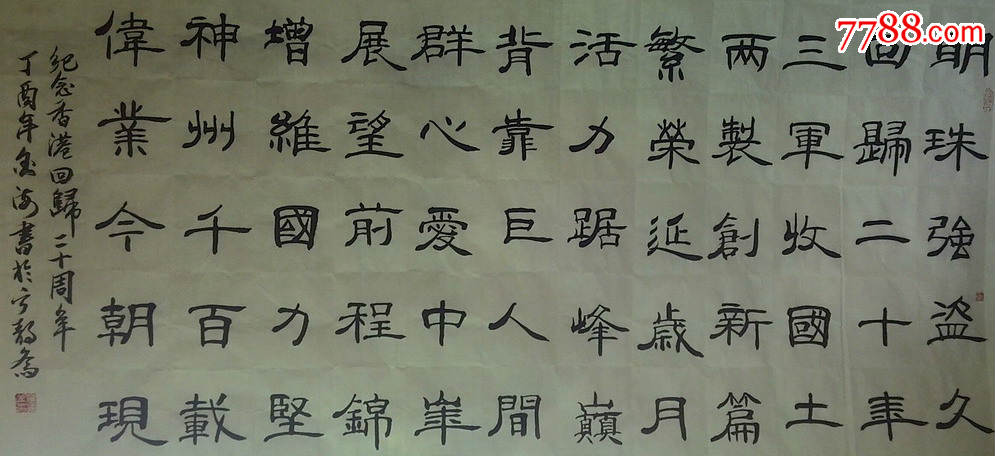 7788.com
明珠強盗久
回歸二十年
三軍收國土
两製創新篇
繁榮延歲月
活力踞峰巔
背靠巨人間
群心愛中華
展望前程錦
增維國力堅
神州千百載
偉業今朝現
紀念香港回歸二十周年
丁酉年
書於